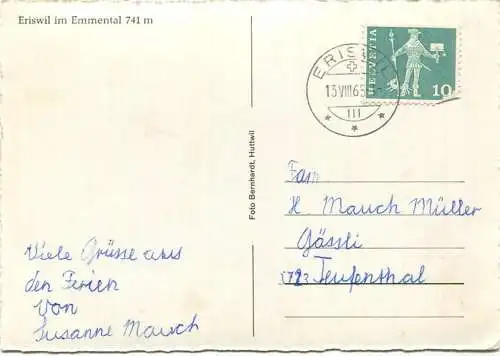 Eriswil im Emmental 741 m
HELVETIA 10
ERISWIL
13.VIII.65
Foto Bernhardt, Huttwil
Fam.
H. Mauch Müller
Gässli
5723 Teufenthal
Viele Grüsse aus
den Ferien
von
Susanne Mauch